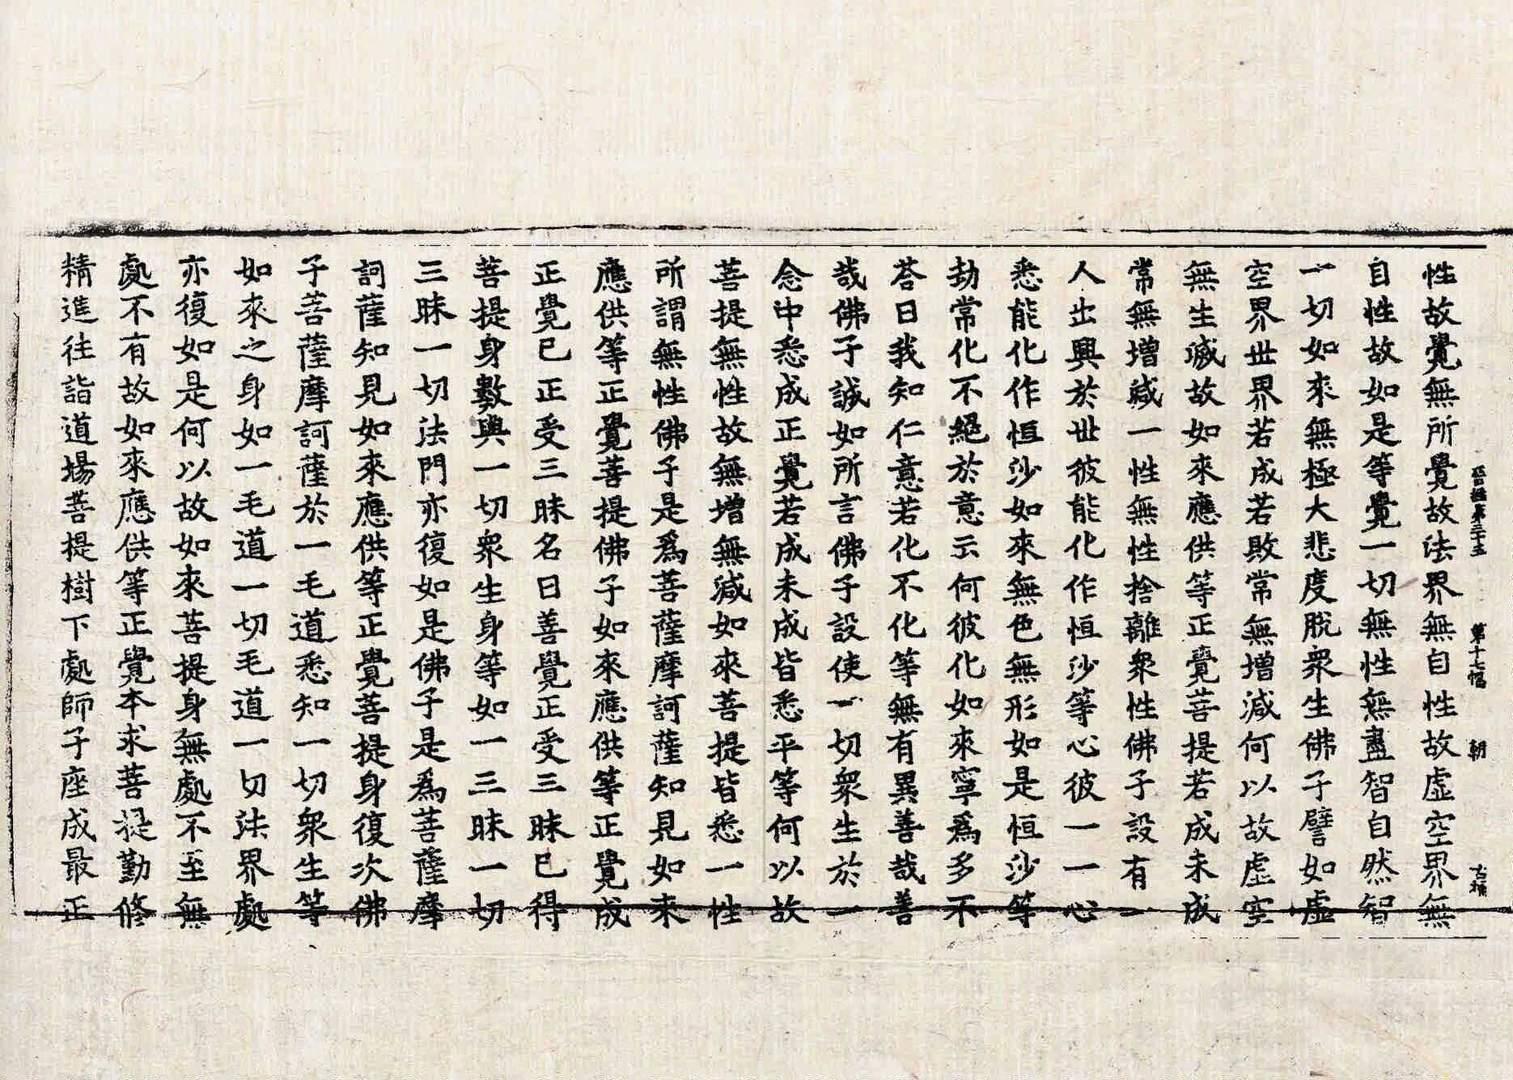 晉經卷三十五 第十七幅 朝 古楠
性故覺無所覺故法界無自性故虛空界無
自性故如是等覺一切無性無盡智自然智
一切如來無極大悲度脫衆生佛子譬如虛
空界世界若成若敗常無增減何以故虛空
無生滅故如來應供等正覺菩提若成未成
常無增減一性無性捨離衆性佛子設有一
人出興於世彼能化作恒沙等心彼一一心
悉能化作恒沙如來無色無形如是恒沙等
劫常化不絕於意云何彼化如來寧爲多不
荅曰我知仁意若化不化等無有異善哉善
哉佛子誠如所言佛子設使一切衆生於一
念中悉成正覺若成未成皆悉平等何以故
菩提無性故無增無減如來菩提皆悉一性
所謂無性佛子是爲菩薩摩訶薩知見如來
應供等正覺菩提佛子如來應供等正覺成
正覺已正受三昧名曰善覺正受三昧已得
菩提身數與一切衆生身等如一三昧一切
三昧一切法門亦復如是佛子是爲菩薩摩
訶薩知見如來應供等正覺菩提身復次佛
子菩薩摩訶薩於一毛道悉知一切衆生等
如來之身如一毛道一切毛道一切法界處
亦復如是何以故如來菩提身無處不至無
處不有故如來應供等正覺本求菩提勤修
精進往詣道場菩提樹下處師子座成最正